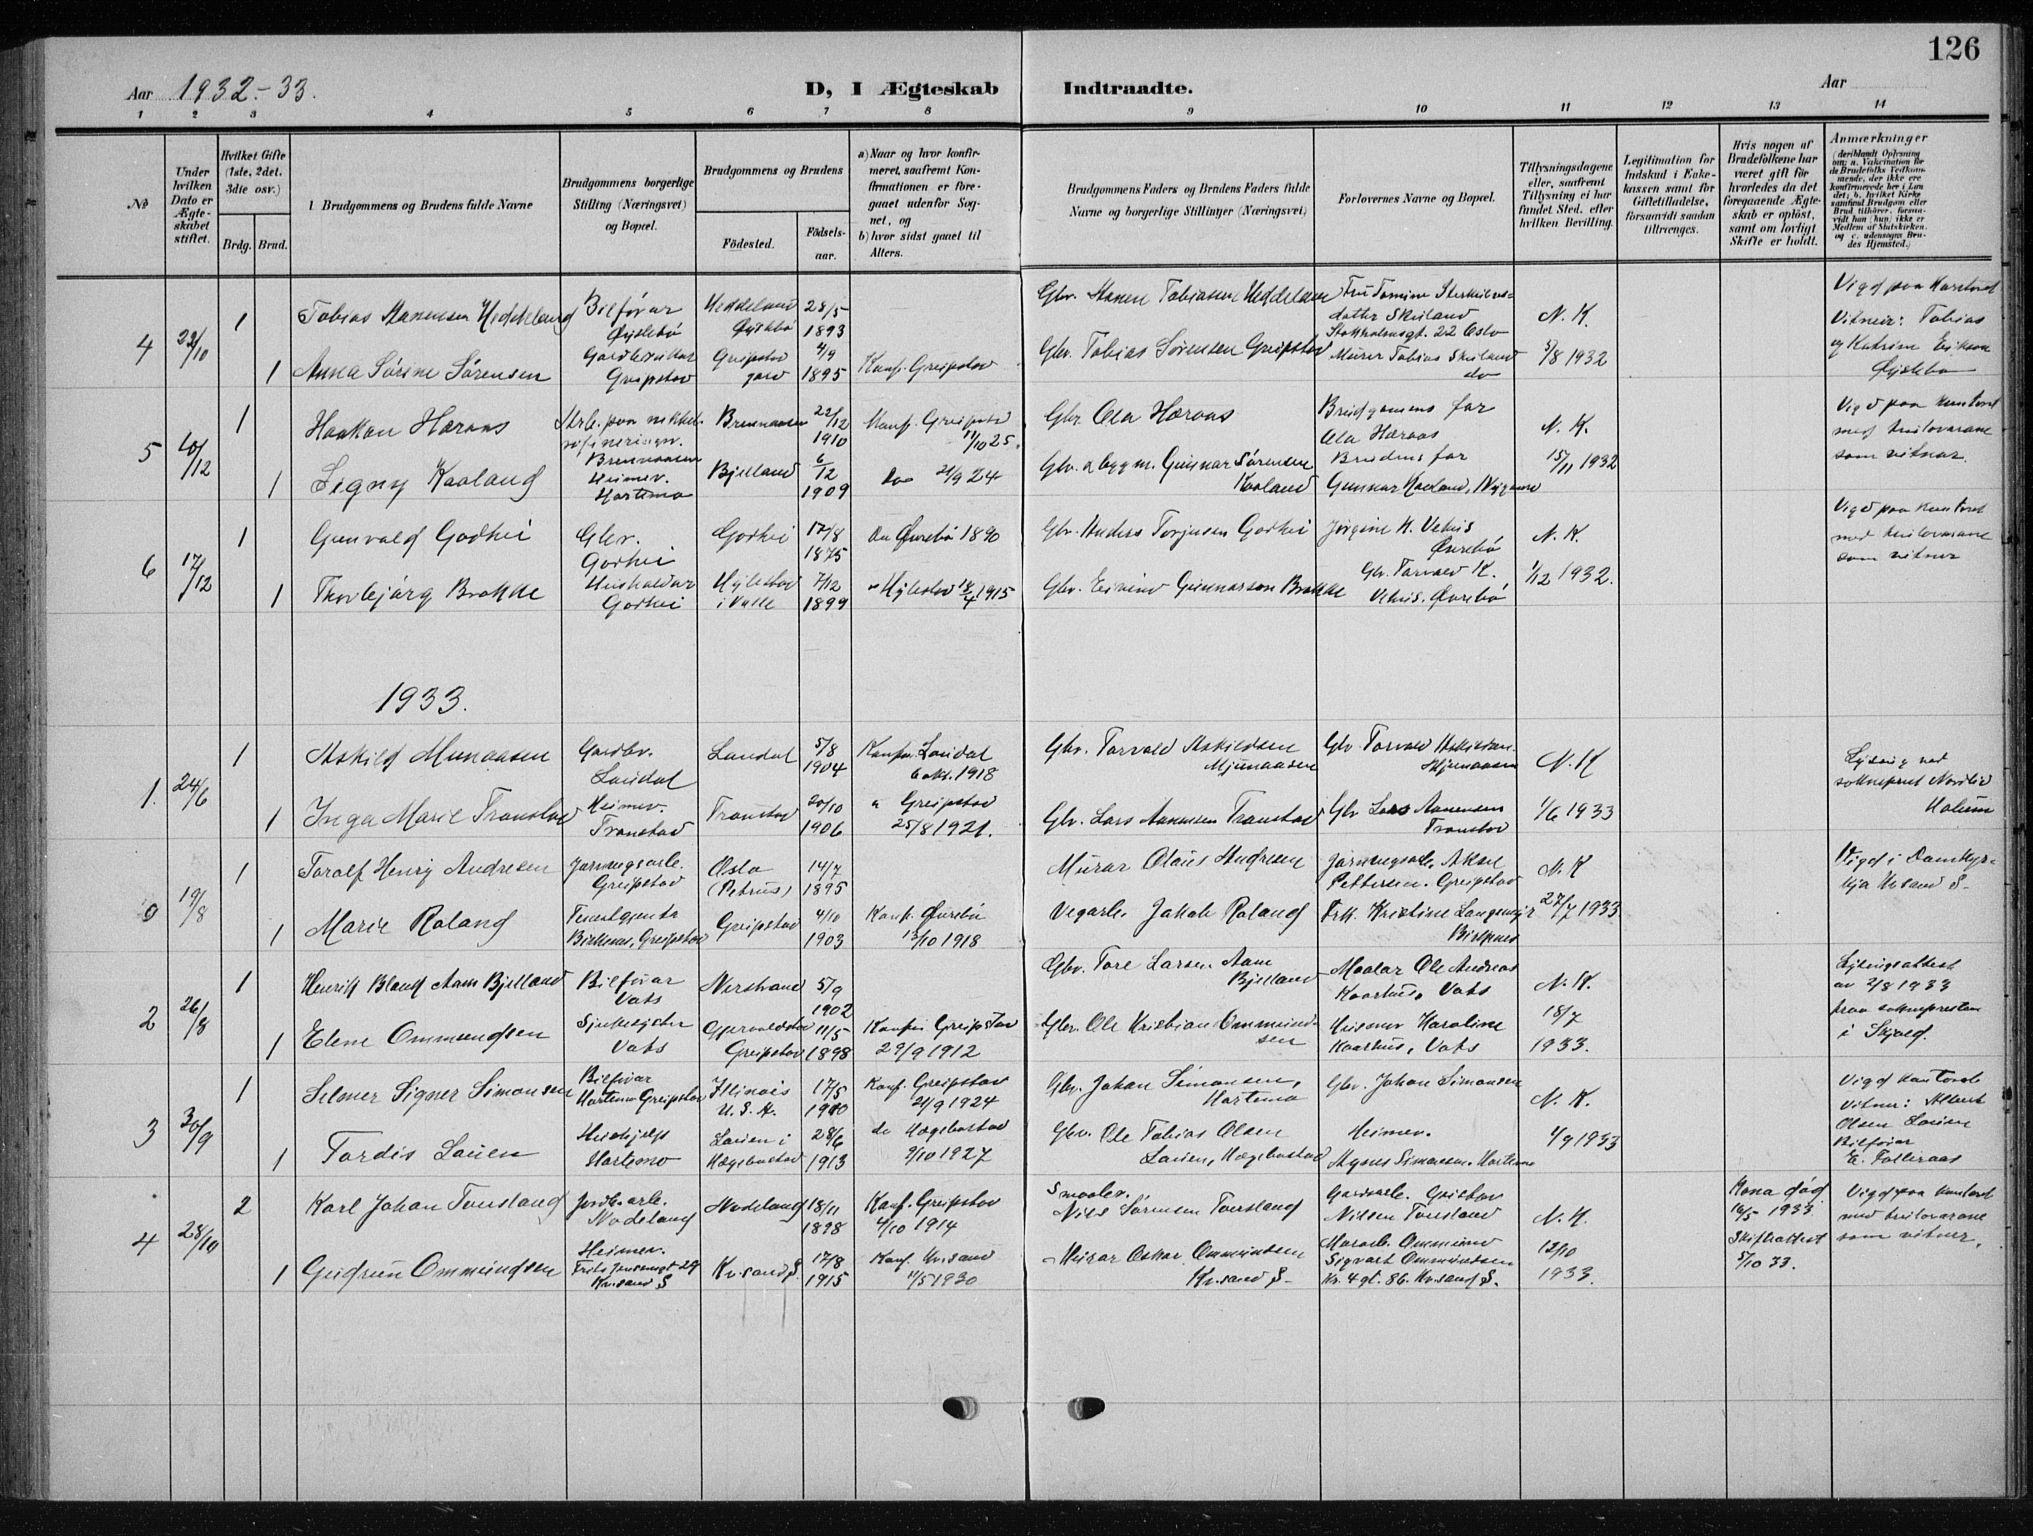 126
Aar 1932-33.
D, I Ægteskab Indtraadte.
Aar
1 2 3 4 5 6 7 8 9 10 11 12 13 14
No
Under hvilken Dato er Ægteskabet stiftet.
Hvilket Gifte (1ste, 2det, 3die osv.)
Brdg. Brud.
Brudgommens og Brudens fulde Navne
Brudgommens borgerlige Stilling (Næringsvei) og Bopæl.
Brudgommens og Brudens
Födested.
Födsels-aar.
a) Naar og hvor konfirmeret, saafremt Konfirmationen er foregaaet udenfor Sognet, og
b) hvor sidst gaaet til Alters.
Brudgommens Faders og Brudens Faders fulde Navne og borgerlige Stillinger (Næringsvei)
Forlovernes Navne og Bopæl.
Tillysningsdagene eller, saafremt Tillysning ei har fundet Sted, efter hvilken Bevilling.
Legitimation for Indskud i Enkekassen samt for Giftetilladelse, forsaavidt saadan tiltrænges.
Hvis nogen af Brudefolkene har været gift för hvorledes da det foregaaende Ægteskab er oplöst, samt om lovligt Skifte er holdt.
Anmærkninger
4 22/10 1 Tobias Hanensen Heddeland Bilførar Øyslebø Heddeland Øyslebø 28/5 1893
Gbr. Hanen Tobiasen Heddeland
Stokholmsgt. 22 Oslo N. K.
Vitneir: Tobias og Katrine Eikson Øyslebø
1 Anna Sørine Sørensen Greipstad Greipstad gard 4/9 1895 Konf. Greipstad
Gbr. Tobias Sørensen Greipstad Murer Tobias Skeiland do 5/8 1932
5 10/12 1 Haakon Høraas Arb. paa nikkel-rafineringsv. Brennaasen Brennaasen 22/12 1910 Konf. Greipstad 11/10 25.
Gbr. Ola Høraas Brudgomens far Ola Høraas N. K.
Vigd paa kontoret med forlovarane som vitnar.
1 Signy Kaaland Heimev. Hortemo Bjelland 6/12 1909 do 21/9 24
Gbr. a bygm. Gunnar Sørensen Kaaland Brudens far Gunnar Kaaland, 15/11 1932
6 17/12 1 Gunvald Godhei Gbr. Godhei Godhei 17/8 1875 do Øvrebø 1890
Gbr. Anders Torjusen Godhei Jørgine K. Vehus Øvrebø N. K.
Vigd paa kontoret med forlovarane som vitner
1 Thorbjørg Brokke Hushaldar Godhei Hylestad i Valle 7/12 1899 " Hylestad 18/4 1915
Gbr. Eivind Gunnarson Brokke Gbr. Torvald K. Vehus. Øvrebø 1/12 1932.
1933.
1. 24/6 1 Askild Mjunaasen Gardbr. Laudal Laudal 5/8 1904 Konf. Laudal 6 okt. 1918
Gbr. Torvald Askildsen Mjunaasen Gbr. Torvald Askildsen Mjunaasen N. K
Lysing ved sokneprest Nordbø Holum
1 Inga Marie Tronstad Heimev. Tronstad Tronstad 20/10 1906 " Greipstad 25/8 1921.
Gbr. Lars Aanensen Tronstad Gbr Lars Aanensen Tronstad 1/6 1933
19/8 1 Toralf Henry Andresen Jarnvegsarb. Greipstad Oslo (Petrus) 14/7 1895
Murar Olaus Andresen Jarnvegsarb. Aksel Pettersen. Greipstad N. K
Vigd i Domkyrkja Krsand S
1 Marie Roland Tenestgjenta Birkenes, Greipstad Greipstad 4/10 1903 Konf. Øvrebø 13/10 1918
Vegarb. Jakob Roland Frk. Kristine Langemyr 27/7 1933
2 26/8 1 Henrik Bland Aam Bjelland Bilførar Vats Nerstrand 5/9 1902
Gbr. Tore Larsen Aam Bjelland Maalar Ole Andreas Kaarhus, Vats N. K.
Lysingsattest av 2/8 1933 fraa soknepresten i Skjold.
1 Elene Ommundsen Sjukesyster Vats Greipstad 11/5 1898 Konf. i Greipstad 29/9 1912
Gbr. Ole Kristian Ommundsen Heimev Karoline Kaarhus, Vats 18/7 1933.
3 30/9 1 Selmer Signer Simonsen Bilførar Hortemo Greipstad Illinois U. S. A. 17/5 1910 Konf. Greipstad 21/9 1924
Gbr. Johan Simonsen, Hortemo Gbr. Johan Simonsen N. K.
Vigd kontoret Vitner: Albert Olsen Lauen Bilførar
1 Tordis Lauen Hushjelp Hortemo Lauen i Hægebostad 28/6 1913 do Hægebostad 9/10 1927
Gbr. Ole Tobias Olsen Lauen, Hægebostad Heimev. Agnes Simonsen. Hortemo 1/9 1933
4 28/10 2 Karl Johan Tonsland Jordb. arb. Nodeland Nodeland 18/11 1898 Konf. Greipstad 4/10 1914
Smaabr. Nils Sørensen Tonsland Gardsarb. Gustav Nilsen Tonsland N. K.
Kona død 16/5 1933 Skifteattest 5/10 33.
Vigd paa kontoret med forlovarane som vitner.
1 Gudrun Ommundsen Heimev. Krsand S Kr.sand S. 17/8 1915 Konf. Kr.sand 11/5 1930
Murar Oskar Ommundsen Kr.sand S Murarb. Ommund Sigvart Ommundsen Kr. 4 gt. 86. Kr.sand S. 12/10 1933.